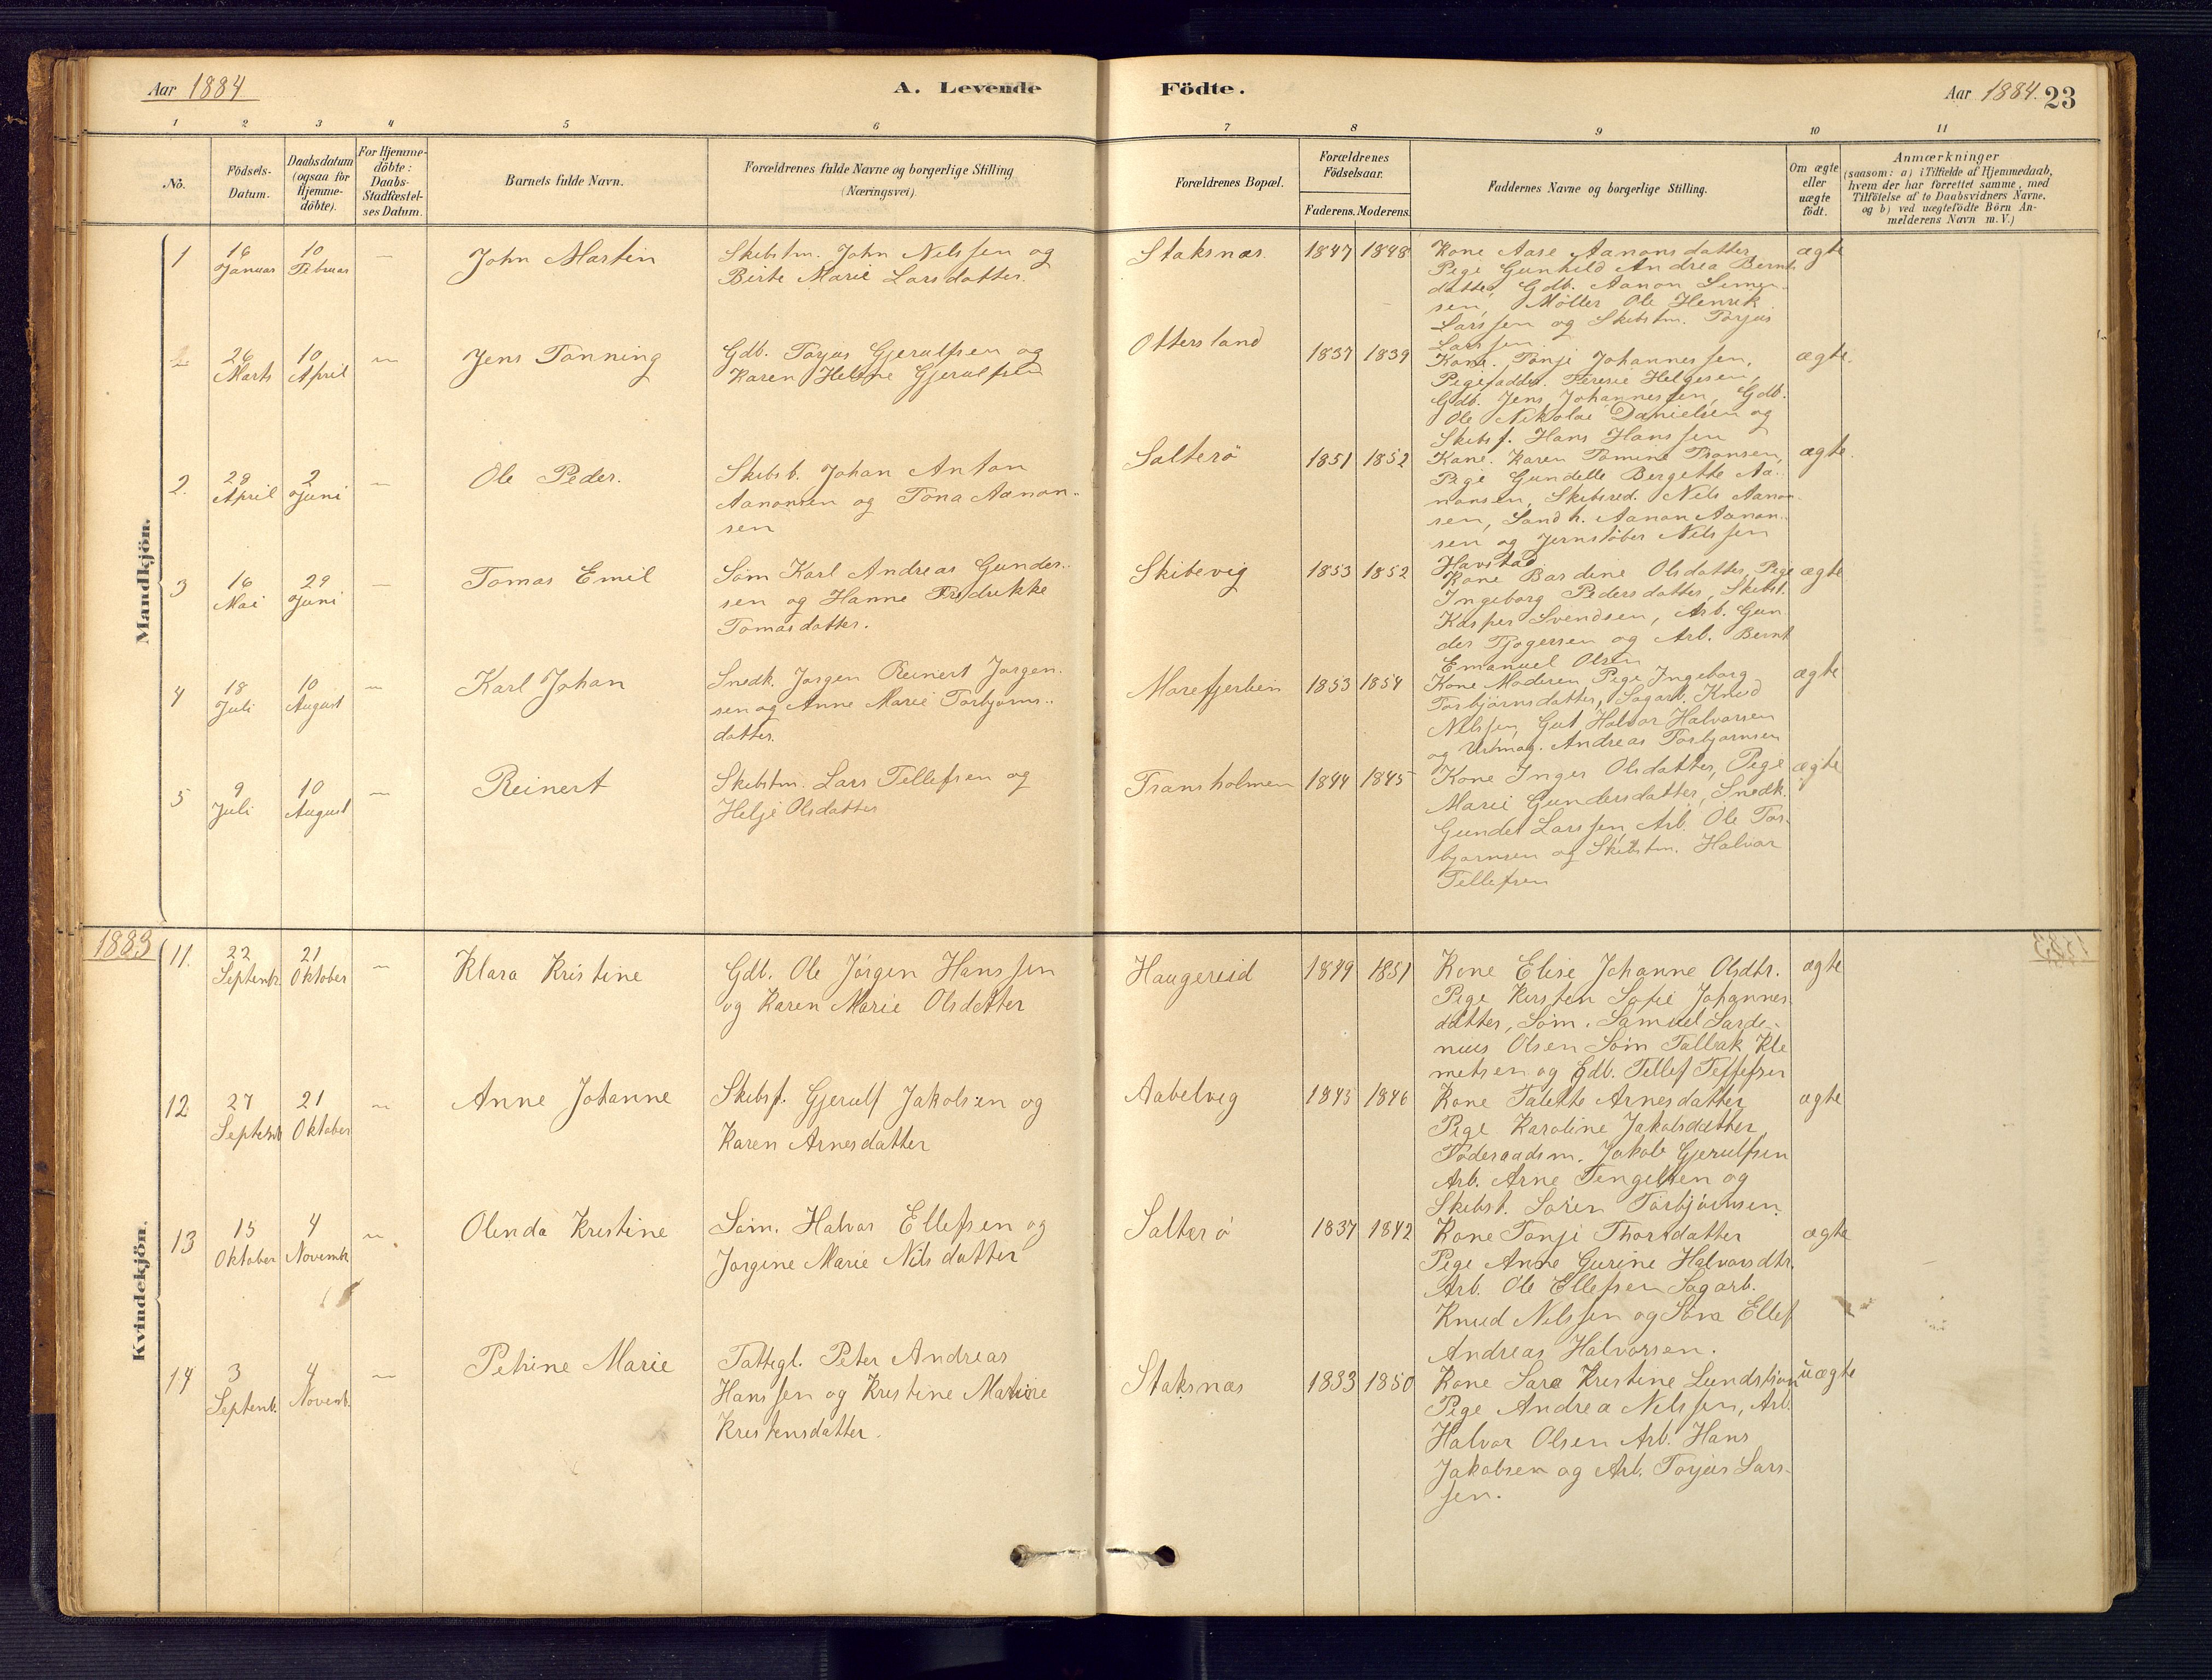 Aar 1884
A. Levende Födte.
Aar 1884. 23
1 2 3 4 5 6 7 8 9 10 11
No.
Födsels-
Datum.
Daabsdatum
(ogsaa for
Hjemme-
döbte).
For Hjemme-
döbte:
Daabs-
Stadfæstel-
ses Datum.
Barnets fulde Navn.
Forældrenes fulde Navne og borgerlige Stilling
(Næringsvei).
Forældrenes Bopæl.
Forældrenes
Födselsaar.
Faderens. Moderens.
Faddernes Navne og borgerlige Stilling.
Om ægte
eller
uægte
födt.
Anmærkninger
(saasom: a) i Tilfælde af Hjemmedaab,
hvem der har forrettet samme, med
Tilföielse af to Daabsvidners Navne,
og b) ved uægtefödte Börn An-
melderens Navn m. V.)
Mandkjön.
1
16
Januar
10
Februar
—
John Martin
Skibstm. John Nilssen og
Birte Marie Larsdatter.
Staksnæs.
1847 1848
Kone Aase Aanonsdatter
Pige Gunhild Andrea Bernt
datter, Gdb. Aanon Simen-
sen, Møller Ole Henrik
Larssen og Skibstm. Torjus
Larssen.
ægte
26
Marts
10
April
—
Jens Tønning
Gdb. Torjus Gjerulfsen og
Karen Helene Gjerulfsen
Ottersland
1837 1839
Kone. Tonje Johannessen,
Pigefadder. Teresie Helgesen,
Gdb. Jens Johannessen, Gdb.
Ole Nikolai Danielsen og
Skibsf. Hans Hanssen
ægte.
2.
28
April
2
Juni
—
Ole Peder.
Skibsb. Johan Anton
Aanonsen og Tona Aanon-
sen
Salterö
1851 1852
Kone. Karen Tomine Fransen,
Pige Gundelle Bergette Aa-
nonsen, Skibsred. Nils Aanon-
sen, Landh. Aanon Aanon-
sen og Jernstøber Nilssen
Havstad
ægte.
3
16
Mai
29
Juni
—
Tomas Emil
Søm Karl Andreas Gunder-
sen og Hanne Fredrikke
Tomasdatter.
Skibevig
1853 1852
Kone Bardine Olsdatter, Pige
Ingeborg Pedersdatter, Skibst.
Kasper Svendsen, Arb. Gun
der Tjøgersen og Arb. Bernt
Emanuel Olsen
ægte
4
18
Juli
10
August
—
Karl Johan
Snedk. Jørgen Reinert Jørgen-
sen og Anne Marie Torbjørns-
datter.
Morefjerheien
1853 1854
Kone Moderen Pige Ingeborg
Torbjörnsdatter, Sagarb. Knud
Nilssen, Gut Halvor Halvorsen
og Urmag. Andreas Torbjørnsen
ægte
5
9
Juli
10
August
—
Reinert
Skibstm. Lars Tellefsen og
Helje Olsdatter
Fransholmen
1844 1845
Kone Inger Olsdatter, Pige
Marie Gundersdatter, Snedk.
Gunder Larssen, Arb. Ole Tor-
bjørnsen og Skibstm. Halvor
Tellefsen
ægte
1883
Kvindekjön.
11.
22
Septembr
21
Oktober
—
Klara Kristine
Gdb. Ole Jörgen Hanssen
og Karen Marie Olsdatter
Haugereid
1849 1851
Kone Elise Johanne Olsdtr.
Pige Kirsten Sofie Johannes-
datter, Söm. Samuel Sarde-
nius Olsen Söm Tallak Kle
metsen og Gdb. Tellef Tellefsen
ægte
12
27
Septemb
21
Oktober
—
Anne Johanne
Skibsf. Gjerulf Jakobsen og
Karen Arnesdatter
Aabelvig
1845 1846
Kone Talette Arnesdatter
Pige Karoline Jakobsdatter
Föderaadsm. Jakob Gjerulfsen
Arb. Arne Tengelsen og
Skibst. Sören Torbjörnsen.
ægte
13
15
Oktober
4
Novembr
—
Olenda Kristine
Söm. Halvor Ellefsen og
Jorgine Marie Nilsdatter
Salterö
1837 1842
Kone Tonje Thorsdatter
Pige Anne Gurine Halvorsdtr.
Arb. Ole Ellefsen Sagarb.
Knud Nilssen og Söm Ellef
Andreas Halvorsen.
ægte
14
3
Septemb.
4
Novemb.
—
Petrine Marie
Tattegl. Peter Andreas
Hanssen og Kristine Martine
Kristensdatter.
Staksnæs
1833 1850
Kone Sara Kristine Lundstrøm
Pige Andrea Nilssen, Arb.
Halvor Olsen Arb. Hans
Jakobsen og Arb. Torjus Lars-
sen.
uægte